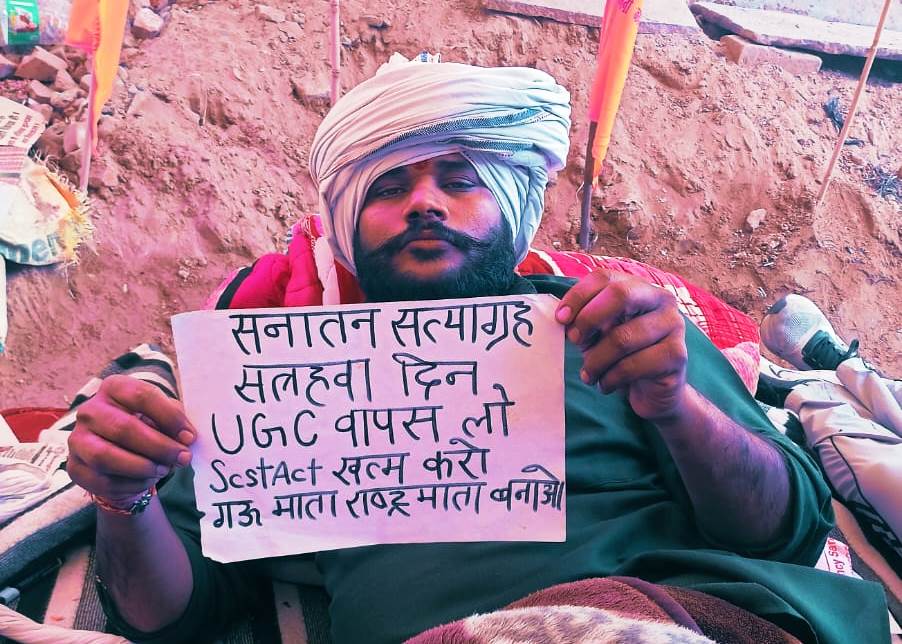 सनातन सत्याग्रह
सत्रहवा दिन
UGC वापस लो
ScstAct खत्म करो
गऊ माता राष्ट्र माता बनाओ